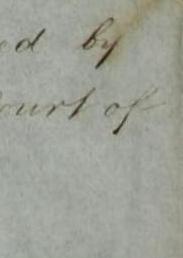 ed by
ourt of